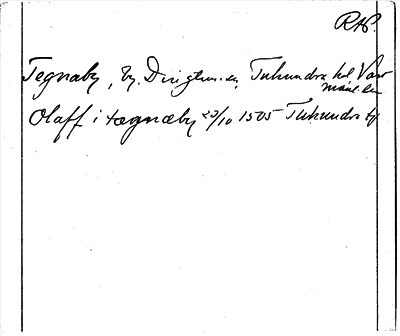 RAP.
Tegnaby, by. Dingtuna sn, Tuhundra hd Väst
manl. län
Olaff i tægnæby 23/10 1505 Tuhundra